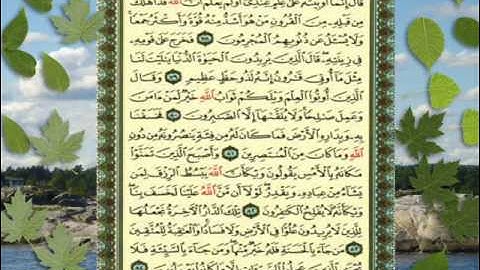 قَالَ إِنَّمَآ أُوتِيتُهُۥ عَلَىٰ عِلْمٍ عِندِىٓ أَوَلَمْ يَعْلَمْ أَنَّ ٱللَّهَ قَدْ أَهْلَكَ
مِن قَبْلِهِۦ مِنَ ٱلْقُرُونِ مَنْ هُوَ أَشَدُّ مِنْهُ قُوَّةً وَأَكْثَرُ جَمْعًا
وَلَا يُسْـَٔلُ عَن ذُنُوبِهِمُ ٱلْمُجْرِمُونَ ٧٨ فَخَرَجَ عَلَىٰ قَوْمِهِۦ
فِى زِينَتِهِۦ قَالَ ٱلَّذِينَ يُرِيدُونَ ٱلْحَيَوٰةَ ٱلدُّنْيَا يَـٰلَيْتَ لَنَا
مِثْلَ مَآ أُوتِىَ قَـٰرُونُ إِنَّهُۥ لَذُو حَظٍّ عَظِيمٍ ٧٩ وَقَالَ
ٱلَّذِينَ أُوتُوا۟ ٱلْعِلْمَ وَيْلَكُمْ ثَوَابُ ٱللَّهِ خَيْرٌ لِّمَنْ ءَامَنَ
وَعَمِلَ صَـٰلِحًا وَلَا يُلَقَّىٰهَآ إِلَّا ٱلصَّـٰبِرُونَ ٨٠ فَخَسَفْنَا
بِهِۦ وَبِدَارِهِ ٱلْأَرْضَ فَمَا كَانَ لَهُۥ مِن فِئَةٍ يَنصُرُونَهُۥ مِن دُونِ
ٱللَّهِ وَمَا كَانَ مِنَ ٱلْمُنتَصِرِينَ ٨١ وَأَصْبَحَ ٱلَّذِينَ تَمَنَّوْا۟
مَكَانَهُۥ بِٱلْأَمْسِ يَقُولُونَ وَيْكَأَنَّ ٱللَّهَ يَبْسُطُ ٱلرِّزْقَ لِمَن
يَشَآءُ مِنْ عِبَادِهِۦ وَيَقْدِرُ لَوْلَآ أَن مَّنَّ ٱللَّهُ عَلَيْنَا لَخَسَفَ بِنَا
وَيْكَأَنَّهُۥ لَا يُفْلِحُ ٱلْكَـٰفِرُونَ ٨٢ تِلْكَ ٱلدَّارُ ٱلْـَٔاخِرَةُ نَجْعَلُهَا
لِلَّذِينَ لَا يُرِيدُونَ عُلُوًّا فِى ٱلْأَرْضِ وَلَا فَسَادًا وَٱلْعَـٰقِبَةُ لِلْمُتَّقِينَ
٨٣ مَن جَآءَ بِٱلْحَسَنَةِ فَلَهُۥ خَيْرٌ مِّنْهَا وَمَن جَآءَ بِٱلسَّيِّئَةِ فَلَا
يُجْزَى ٱلَّذِينَ عَمِلُوا۟ ٱلسَّيِّـَٔاتِ إِلَّا مَا كَانُوا۟ يَعْمَلُونَ